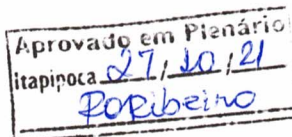 Aprovado em Plenário
itapipoca 27/10/21
PORibeiro